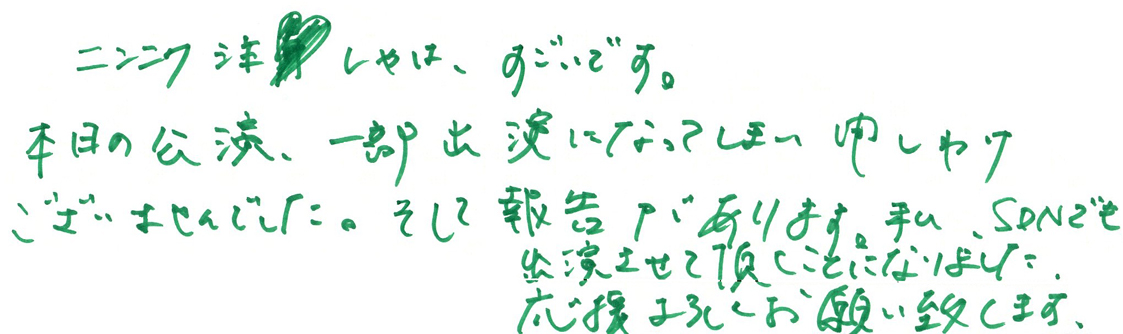 ニンニク注しゃは、すごいです。
本日の公演、一部出演になってしまい申しわけ
ございませんでした。そして報告があります。私、SDNでも
出演させて頂くことになりました。
応援よろしくお願い致します。